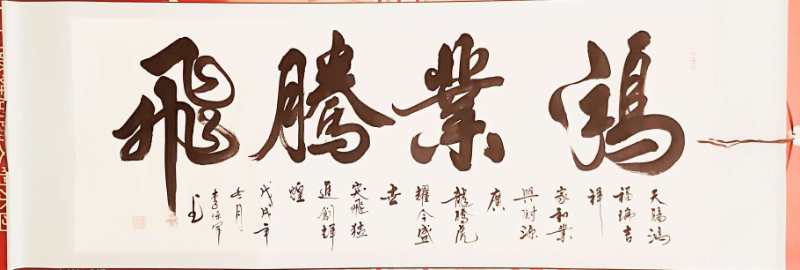 鴻業騰飛
天賜鴻
福瑞吉
祥
家和業
興財源
廣
龍騰虎
耀今盛
世
突飛猛
進創輝
煌
戊戌年
七月